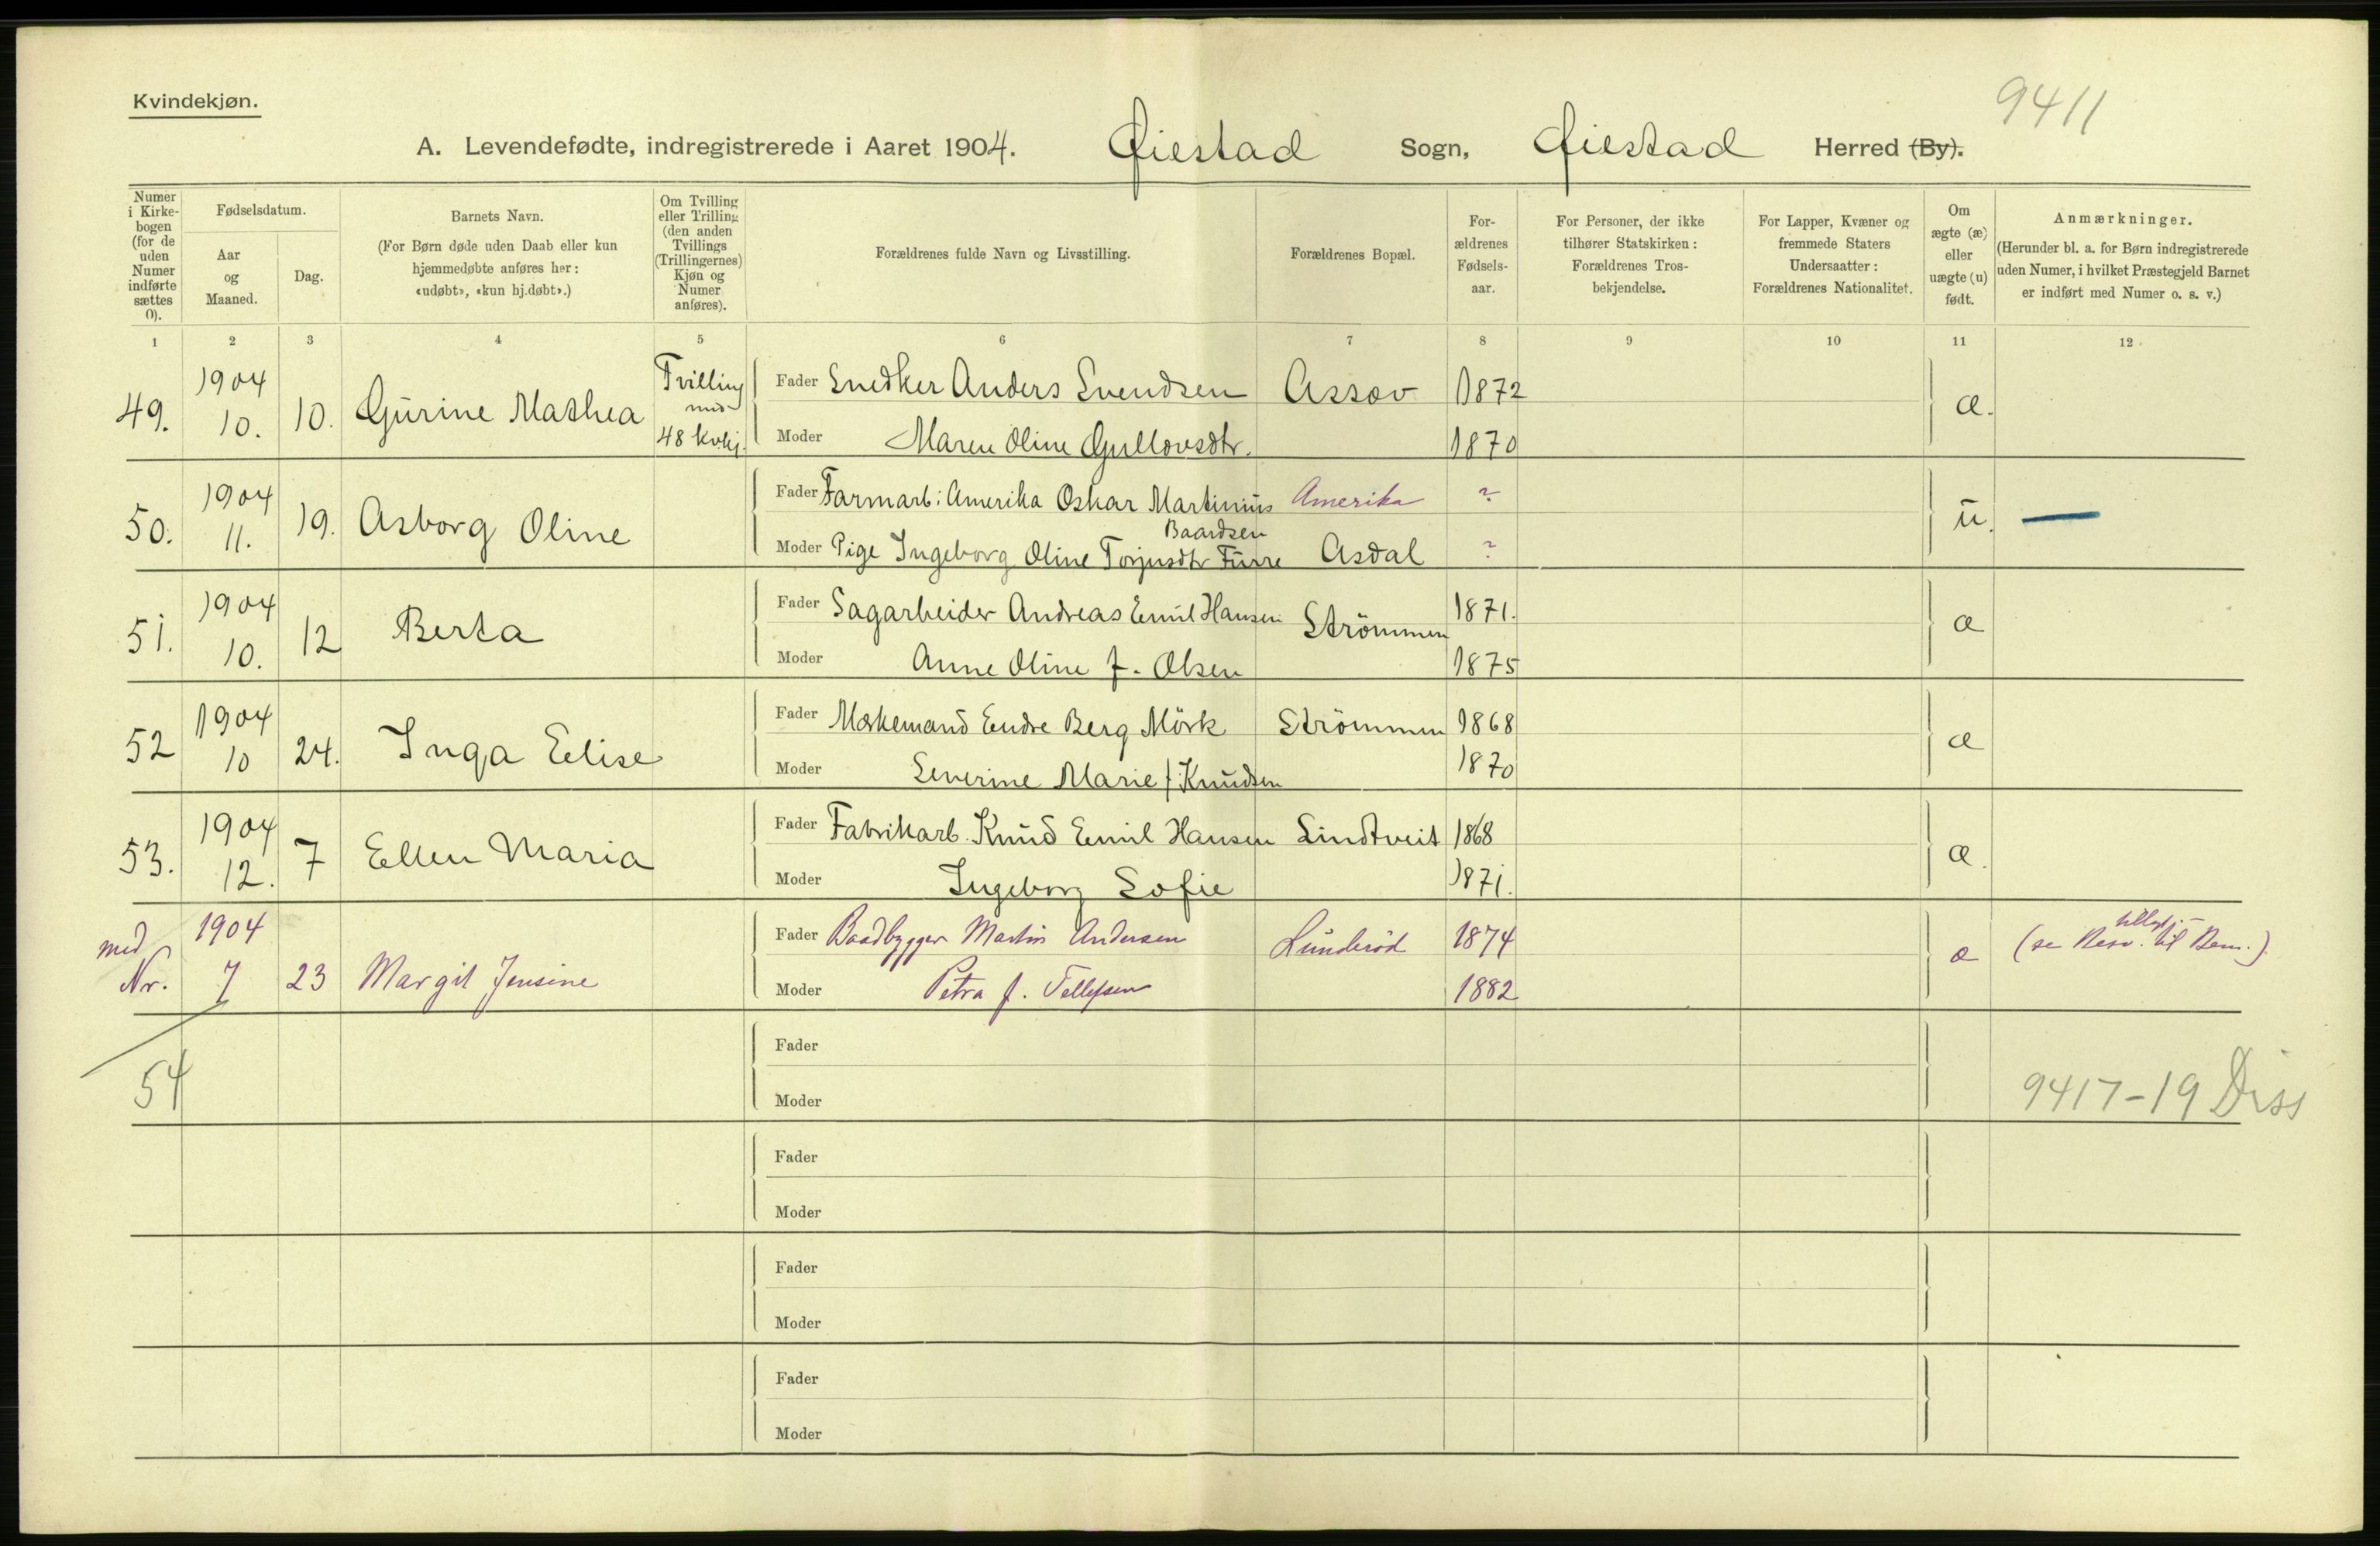 Kvindekjøn.
9411
A. Levendefødte, indregistrerede i Aaret 1904. Øiestad Sogn, Øiestad Herred (By).
Numer i Kirke-bogen (for de uden Numer indførte sættes 0).
Fødselsdatum.
Aar og Maaned.
Dag.
Barnets Navn.
(For Børn døde uden Daab eller kun
hjemmedøbte anføres her:
«udøbt», «kun hj.døbt».)
Om Tvilling
eller Trilling
(den anden
Tvillings
(Trillingernes)
Kjøn og
Numer
anføres).
Forældrenes fulde Navn og Livsstilling.
Forældrenes Bopæl.
For-
ældrenes
Fødsels-
aar.
For Personer, der ikke
tilhører Statskirken:
Forældrenes Tros-
bekjendelse.
For Lapper, Kvæner og
fremmede Staters
Undersaatter:
Forældrenes Nationalitet.
Om
ægte (æ)
eller
uægte (u)
født.
Anmærkninger.
(Herunder bl. a. for Børn indregistrerede
uden Numer, i hvilket Præstegjeld Barnet
er indført med Numer o. s. v.)
1 2 3 4 5 6 7 8 9 10 11 12
49. 1904 10. 10. Gurine Mathea Tvilling med 48 kvkj.
Fader Snedker Anders Svendsen Assev 1872 æ.
Moder Maren Oline Gullovsdtr. 1870
50. 1904 11. 19. Asborg Oline
Fader Farmarb. i Amerika Oskar Martinius Baardsen Amerika ? u.
Moder Pige Ingeborg Oline Torjusdtr Furre Asdal ?
51. 1904 10. 12 Berta
Fader Sagarbeider Andreas Emil Hansen Strömmen 1871. æ
Moder Anne Oline f. Olsen 1875
52 1904 10 24. Inga Elise
Fader Maskemand Endre Berg Mörk Strömmen 1868 æ
Moder Severine Marie f. Knudsen 1870
53. 1904 12. 7 Ellen Maria
Fader Fabrikarb. Knud Emil Hansen Lindtveit 1868 æ.
Moder Ingeborg Sofie 1871.
med Nr. 1904 7 23 Margit Jensine
Fader Baadbygger Martin Andersen Lunderöd 1874 æ (se Besv. til Bem.)
Moder Petra f. Tellefsen 1882
54
Fader
Moder
9417-19 Diss
Fader
Moder
Fader
Moder
Fader
Moder